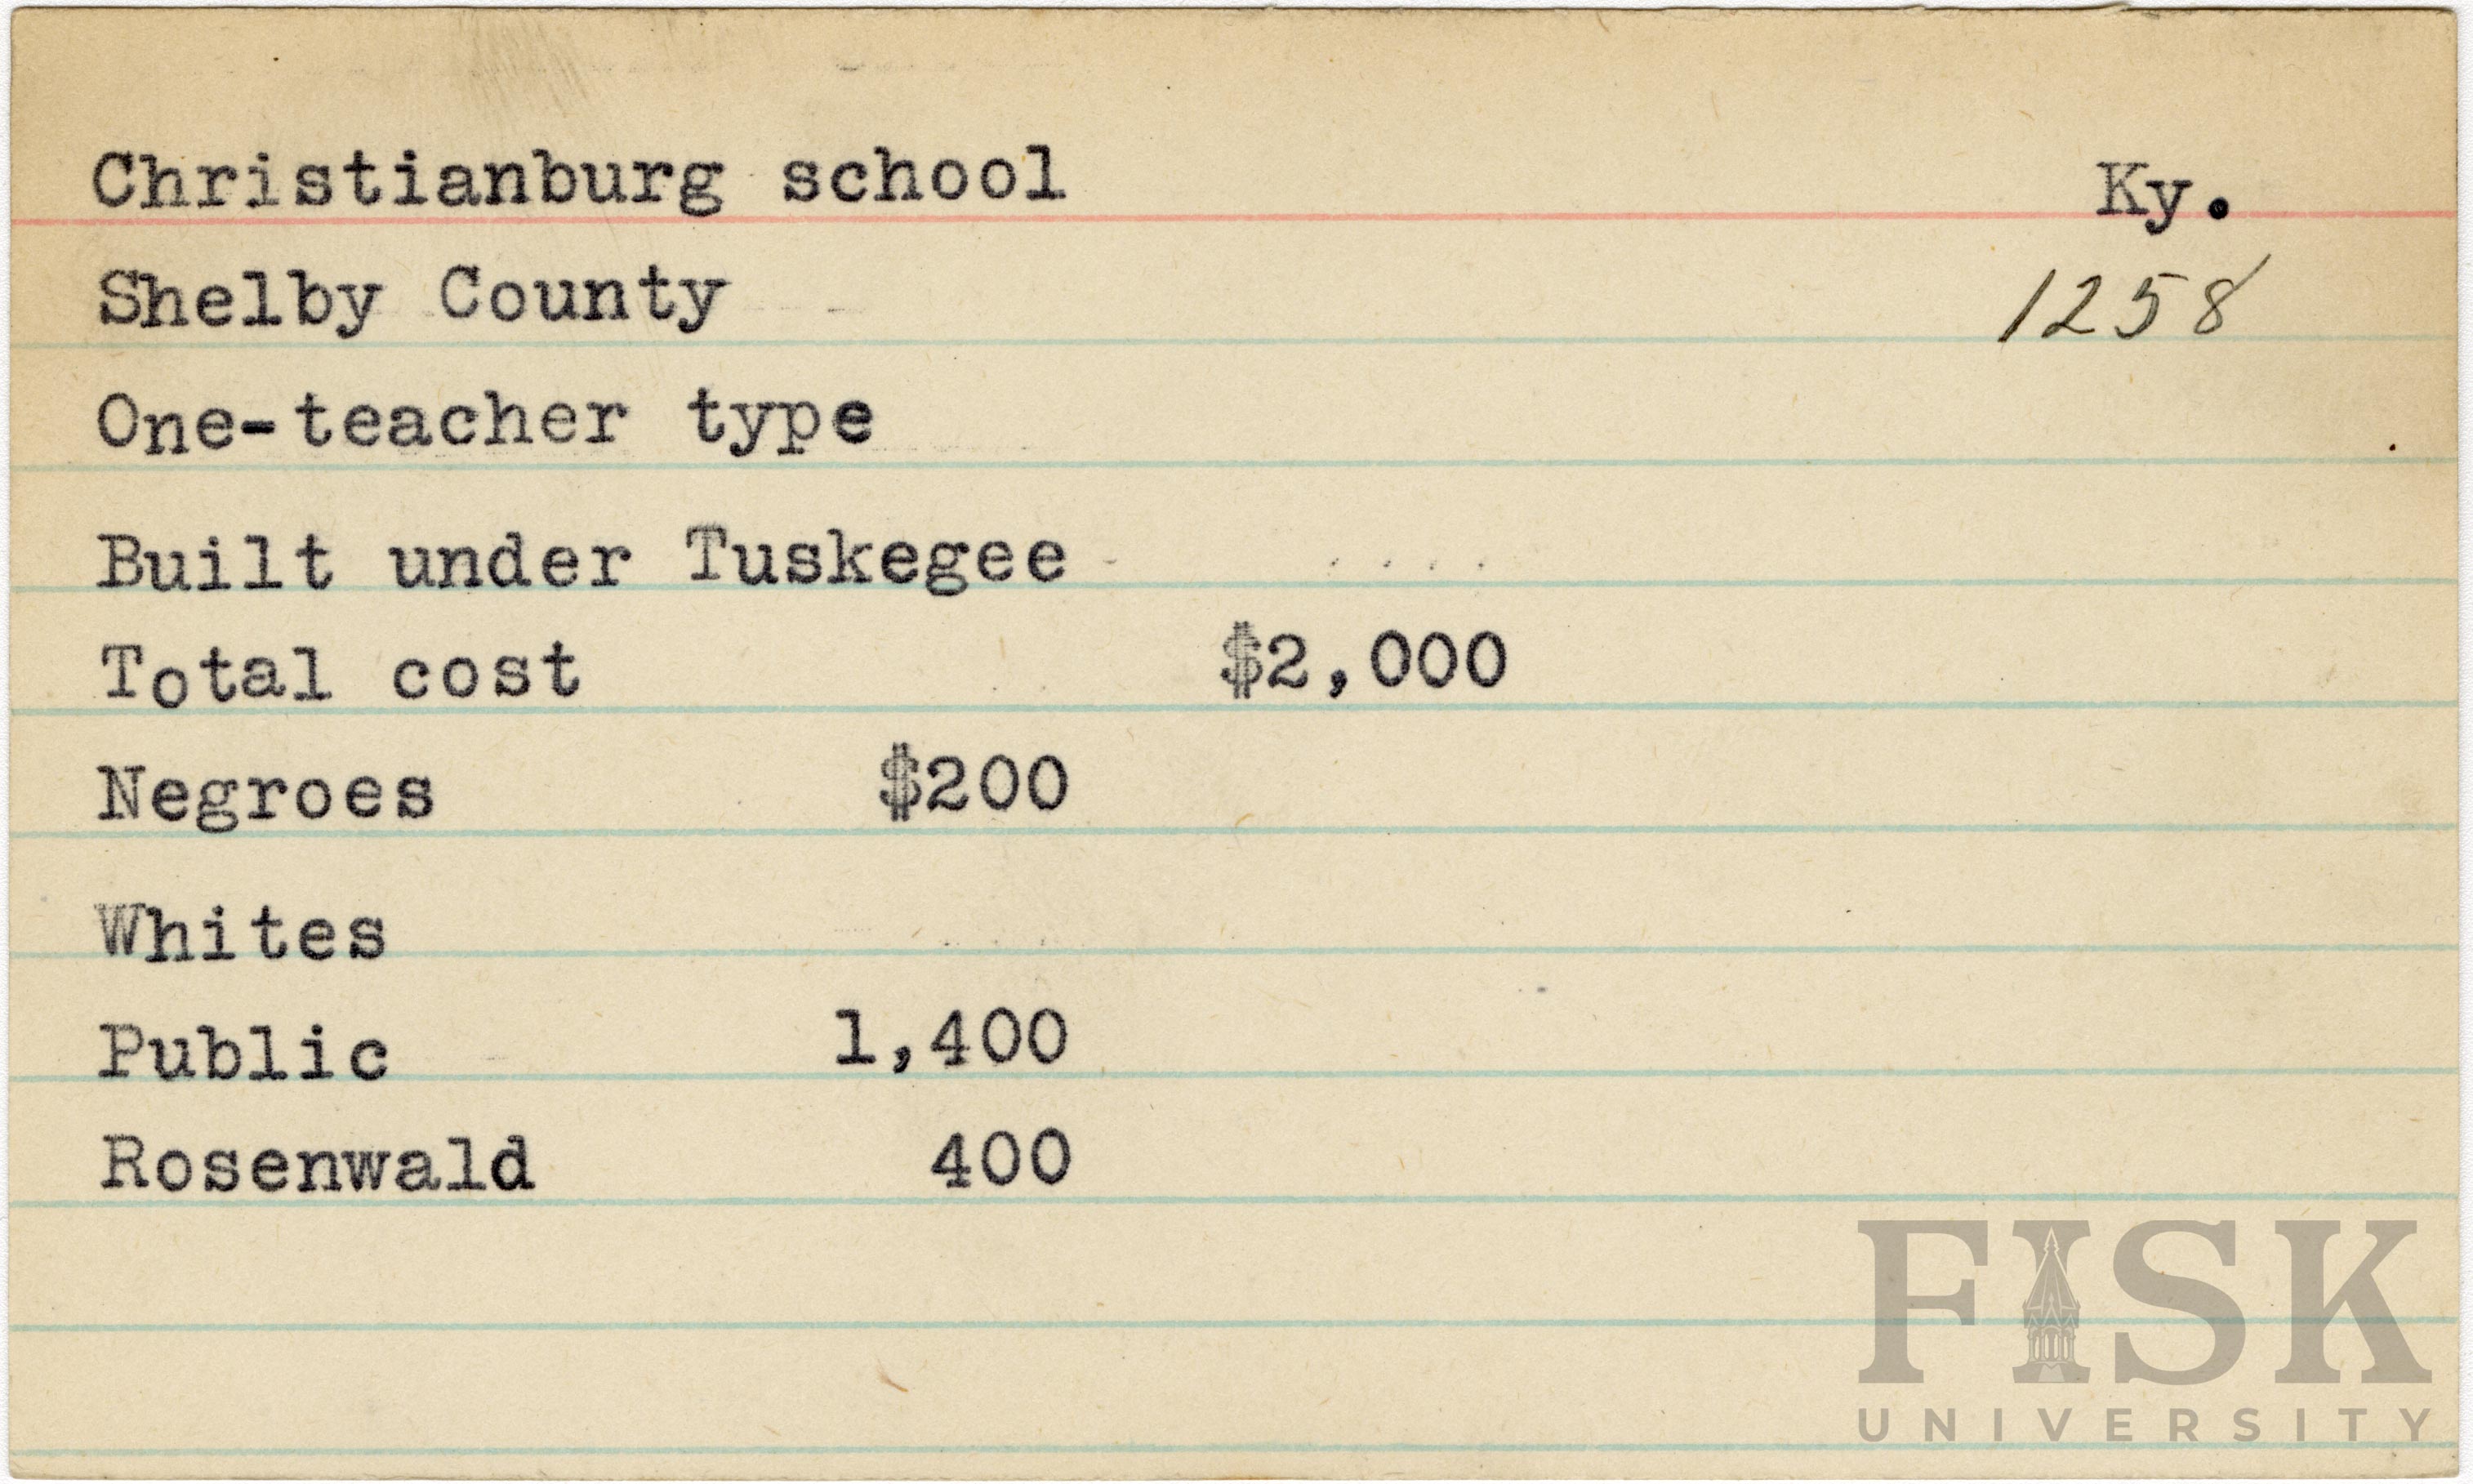 Christianburg school Ky.
Shelby County 1258
One-teacher type
Built under Tuskegee
Total cost $2,000
Negroes $200
Whites
Public 1,400
Rosenwald 400
FISK
UNIVERSITY